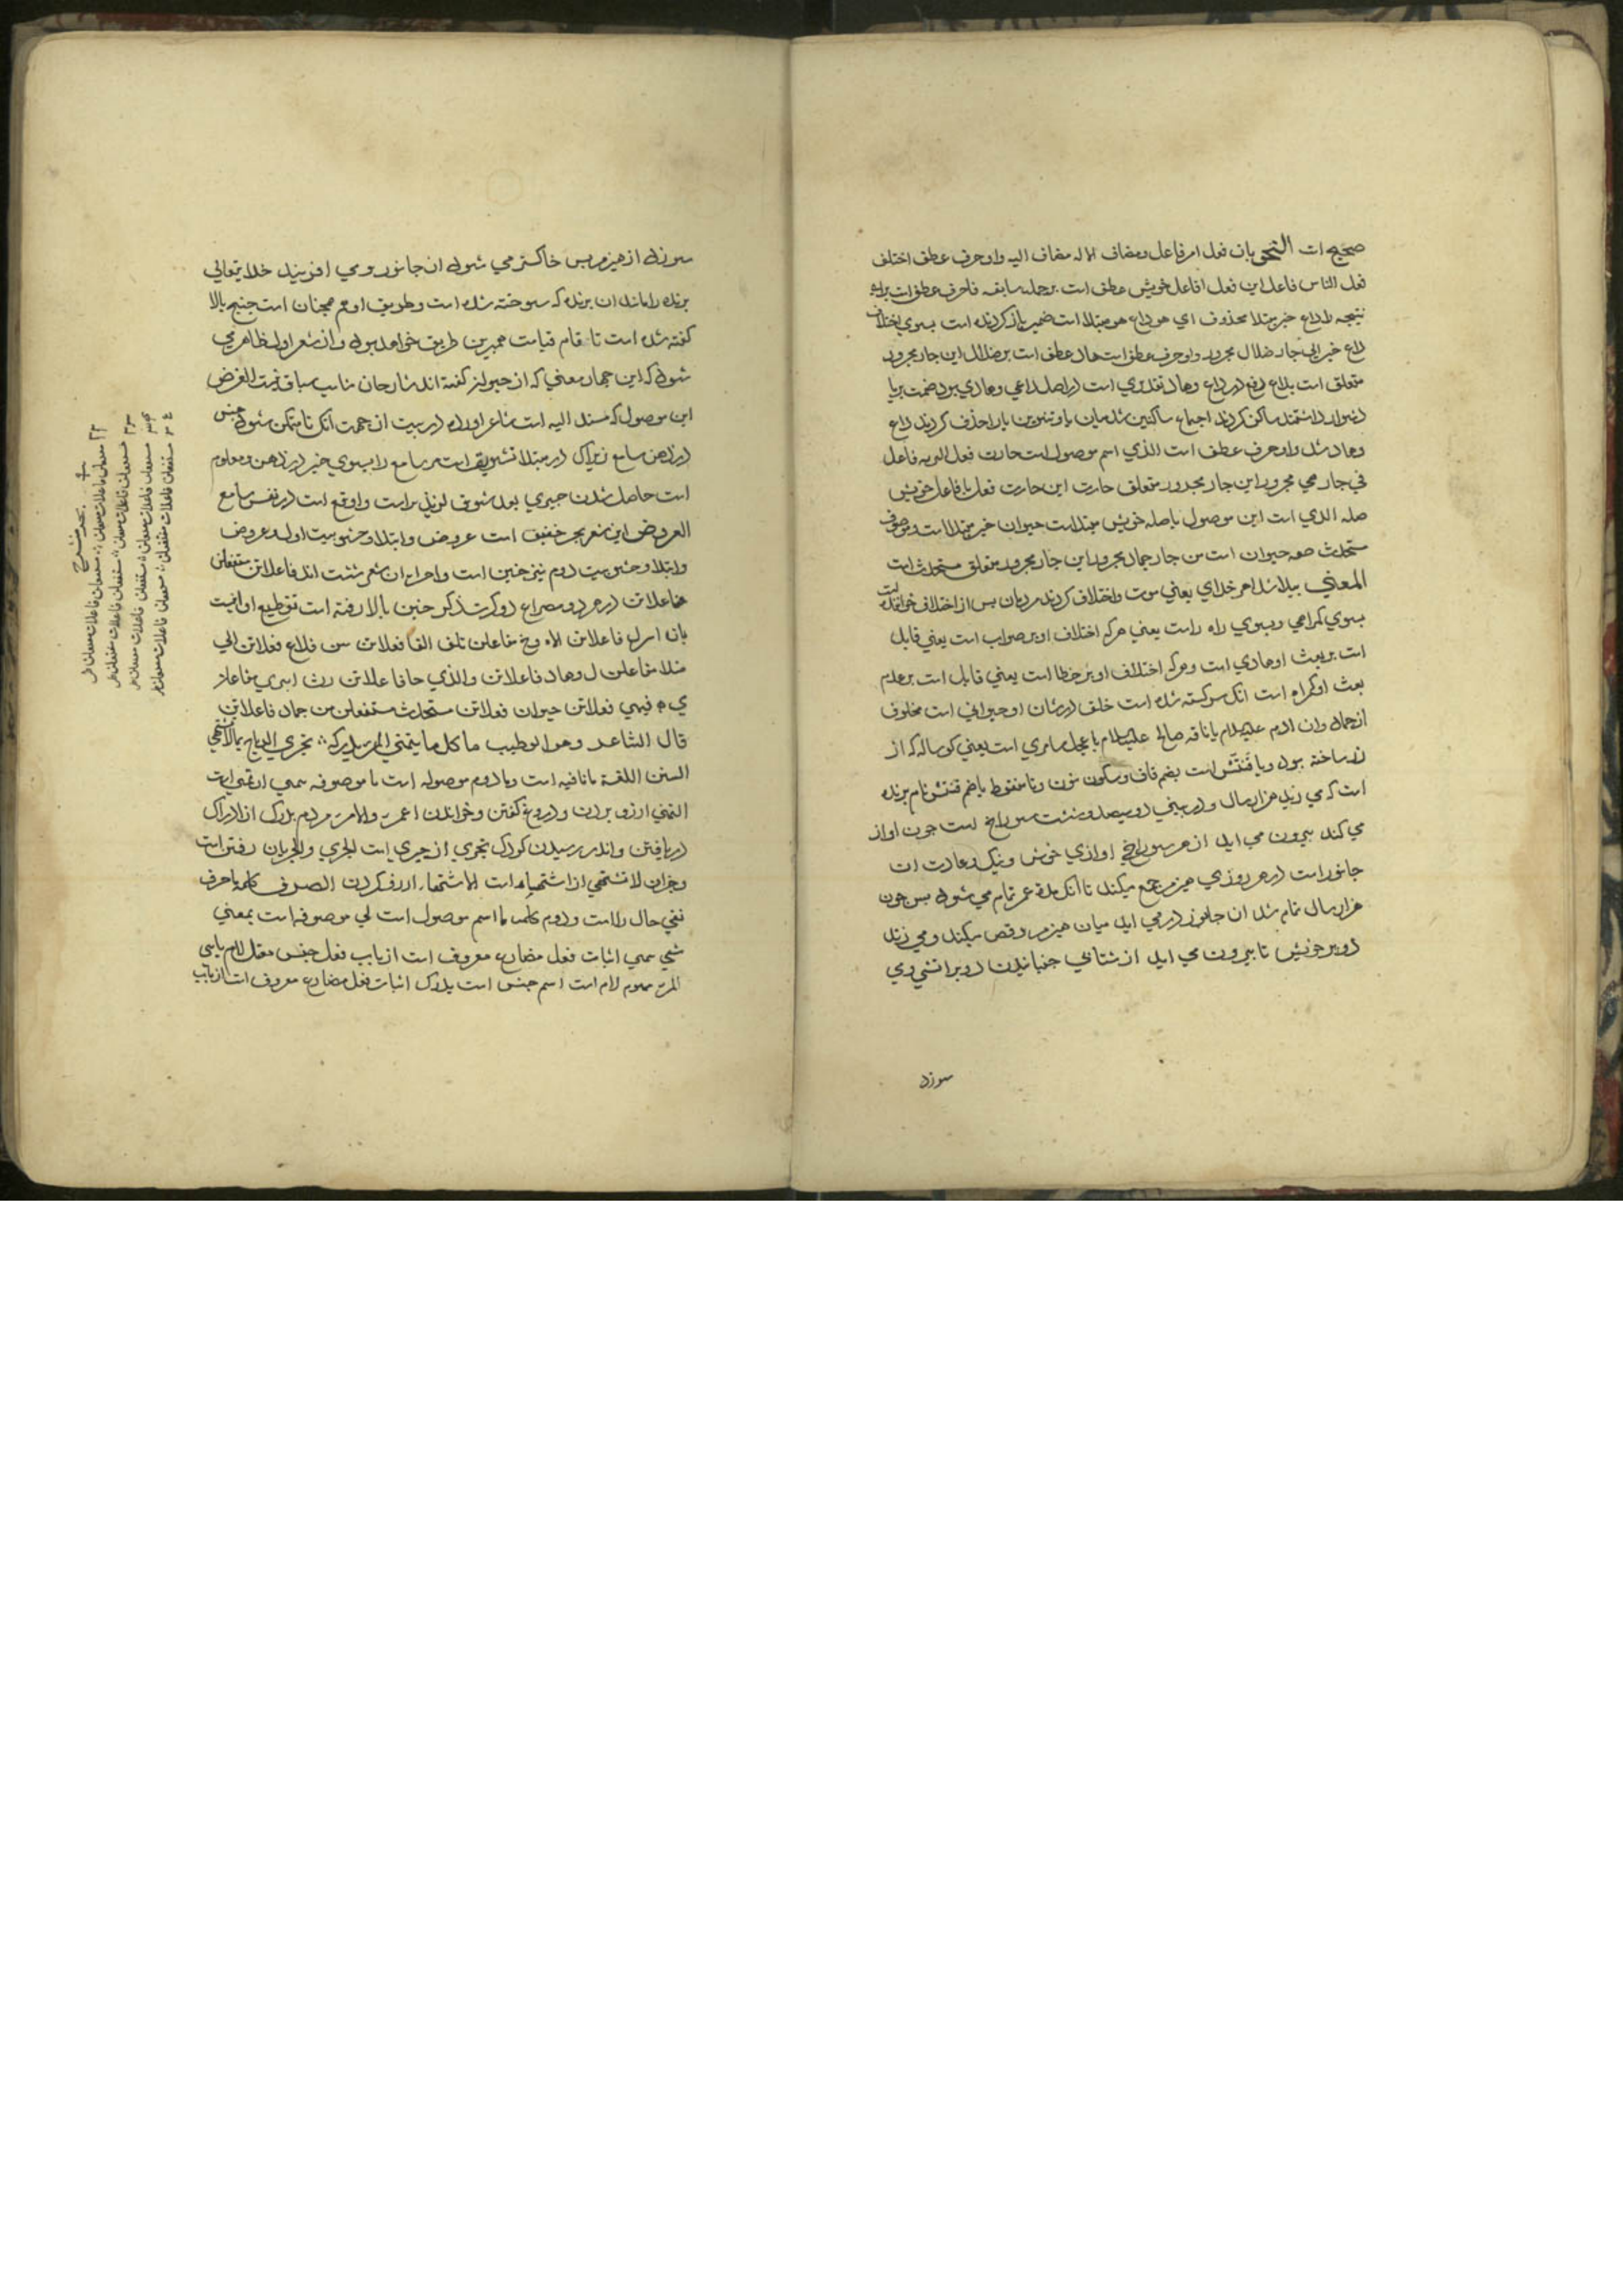 صحیح است النحو بان فعل امر فاعل ومضاف الاله مضاف الیه واو حرف عطف اختلف
فعل الناس فاعل این فعل افاعل خویش عطف است بر جمله سابقه فا حرف عطف است برای
نتیجه را داع خبر مبتدا محذوف ای هو داع هو مبتدا است ضمیر باز کردنده است بسوی اختلاف
داع خبر الی جار ضلال مجرور واو حرف عطف است هاد عطف است بر ضلال این جار مجرور
متعلق است بداع رفع در داع وهاد تقدیری است در اصل داعی وهادی بود ضمت بر یا
دشوار داشتند ساکن کردند اجتماع ساکنین شد میان یا وتنوین یا را حذف کردند داع
وهاد شد واو حرف عطف است الذی اسم موصول است حارت فعل البریه فاعل
فی جار هی مجرور این جار مجرور متعلق حارت این حارت فعل با فاعل خویش
صله الذی است این موصول با صله خویش مبتدا است حیوان خبر مبتدا است وموصوف
مستحدث صفه حیوان است من جار جماد مجرور این جار مجرور متعلق مستحدث است
المعنی پیدا شد امر خدای یعنی موت واختلاف کردند مردمان پس از اختلاف خواننده است
بسوی کمراهی وبسوی راه راست یعنی هرکه اختلاف او بر صواب است یعنی قابل
است بر بعث او هادی است وهرکه اختلاف او بر خطا است یعنی قابل است بر عدم
بعث او کمراه است انک سرکشته شده است خلق در شان او حیوانی است مخلوق
از جماد وان ادم علیه السلام یا ناقه صالح علیه السلام یا عجل سامری است یعنی کوساله که از
زر ساخته بود ویا قُنتش است بضم قاف وسکون نون وتا منقوط با ضم قنتش نام پرنده
است که می زید هزار سال ودر بینی دو سیصد وشست سوراخ است چون اواز
می کند بیرون می اید از هر سوراخی اوازی خوش ونیک وعادت ان
جانور است در هر روزی هیزم جمع میکند تا انک مدة عمر تمام می شود پس چون
هزار سال تمام شد ان جانور در می اید میان هیزم ورقص میکند ومی زند
دو پر خویش تا بیرون می اید از شتابی جنبانیدن دو پر اتشی وی
سوزد
سوزد از هیزم پس خاکستر می شود ان جانور ومی افریند خدا یتعالی
پرنده را مانند ان پرنده که سوخته شده است وطریق او هم همچنان است چنچ بالا
کفته شده است تا قام قیامت همبرین طریق خواهد بود واز شعر اول ظاهر می
شود که این جماد معنی که از حیوان کفته اند شارحان مناسب سیاق نیست الغرض
این موصول که مسند الیه است شاعر اورده در بیت از جهت انک تا متمکن شود خبر
در ذهن سامع زیراک در مبتدا تشویق است مر سامع را بسوی خبر در ذهن ومعلوم
است حاصل شدن چیزی بعد شوق لذیذتر است واوقع است در نفس سامع
العروض این شعر بحر خفیف است عروض وابتدا وحشو بیت اول وعروض
وابتدا وحشو بیت دوم نیز خبن است واجزاء ان شعر شش است اند فاعلاتن مستفعلن
فاعلاتن در هر دو مصراع دو کرت ذکر خبن بالا رفته است تقطیع او اینست
بان امرل فاعلاتن الاه وخ مفاعلن تلف النا فعلاتن س فداع فعلاتن الی
ضلا مفاعلن ل وهاد فاعلاتن والذی حا فاعلاتن رت البری مفاعلن
ی ه فیهی فعلاتن حیوان فعلاتن مستحدث مستفعلن من جماد فاعلاتن
قال الشاعر وهو ابو طیب ما کل ما یتمنی المرء یدرکه ؞ تجری الریاح بما لا تشتهی
السفن اللغة ما نافیه است وما دوم موصوله است یا موصوفه یتمنی از تمنی است
التمنی ارزو بردن ودروغ کفتن وخواندن اعمرت والمرء مردم یدرک از ادراک
دریافتن واندر رسیدن کودک تجری از جری است الجری والجریان رفتن است
وجزان لا تشتهی از اشتهاء است الاشتهاء ارزو کردن الصرف کلمه ما حرف
نفی حال را است ودوم کلمه ما اسم موصول است لی موصوفه است بمعنی
شی یتمنی اثبات فعل مضارع معروف است از باب تفعل جنس معتل لام یایی
المرء مهموم لام است اسم جنس است یدرک اثبات فعل مضارع معروف است از باب
بحر منسرح